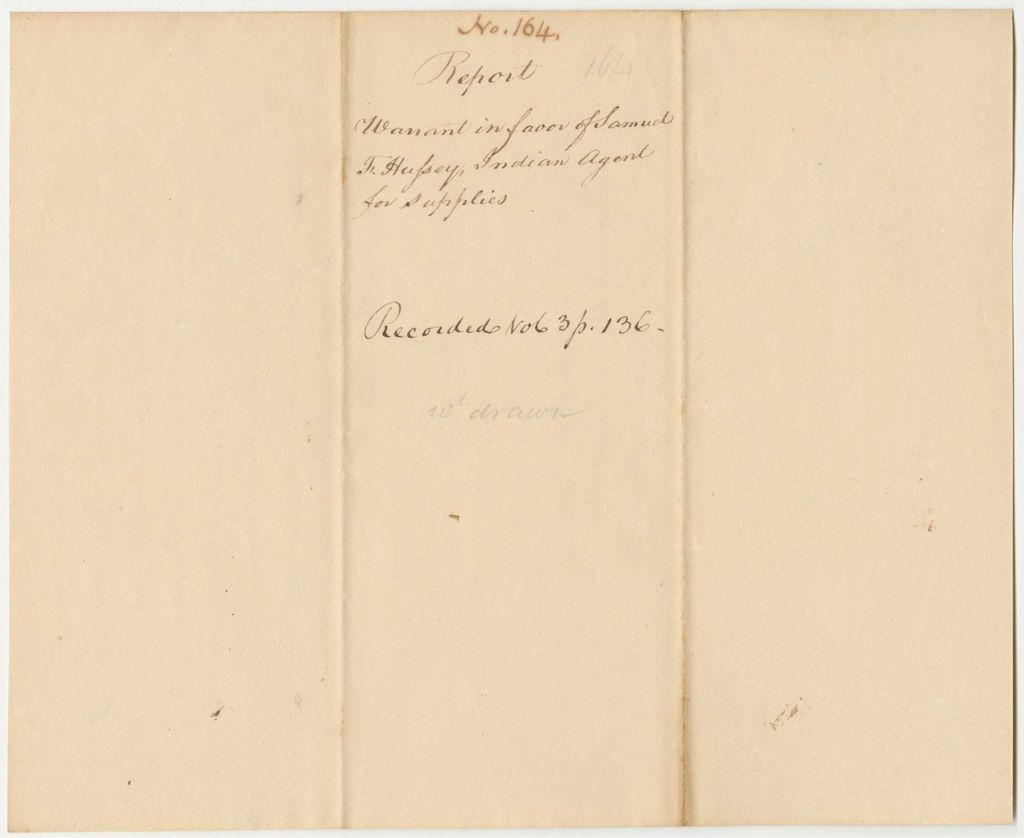 No. 164.
Report 164
Warrant in favor of Samuel
F. Hussey, Indian Agent
for supplies
Recorded Vol 3 p. 136-
wt drawn